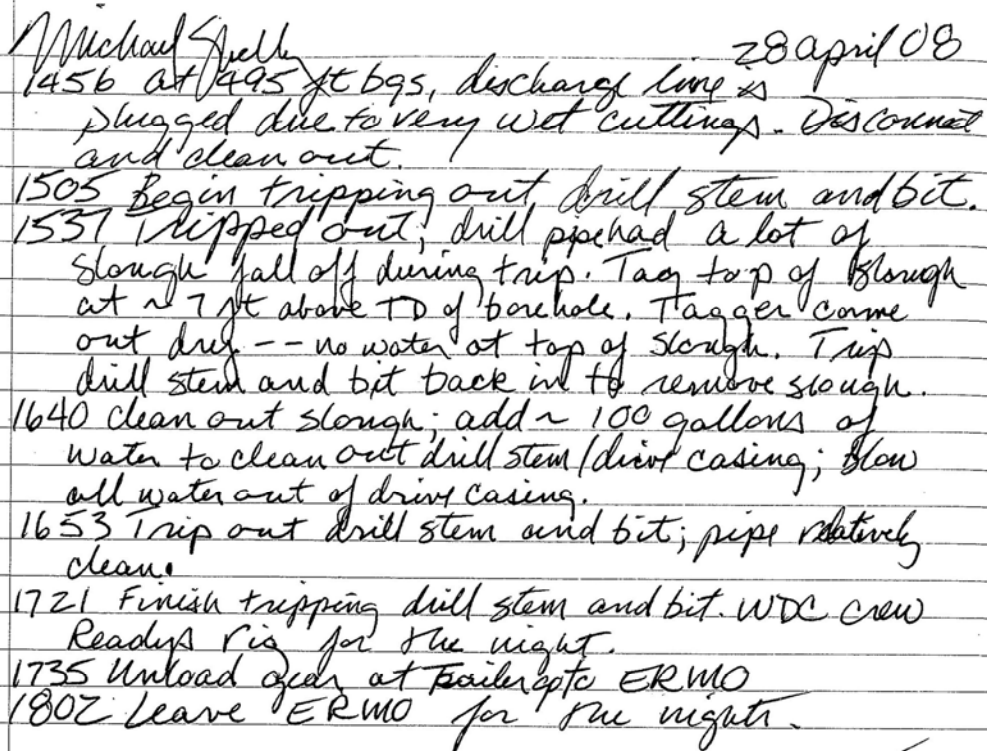 Michael Shelly 28 april 08
1456 at 495 ft bgs, discharge line is
plugged due to very wet cuttings. Disconnect
and clean out.
1505 Begin tripping out drill stem and bit.
1537 Tripped out; drill pipe had a lot of
slough fall off during trip. Tag top of slough
at ~ 7 ft above TD of borehole. Tagger come
out dry -- no water at top of slough. Trip
drill stem and bit back in to remove slough.
1640 clean out slough; add ~ 100 gallons of
water to clean out drill stem/drive casing; blow
all water out of drive casing.
1653 Trip out drill stem and bit; pipe relatively
clean.
1721 Finish tripping drill stem and bit. WDC crew
Readys rig for the night.
1735 Unload gear at trailer ERMO
1802 Leave ERMO for the night.